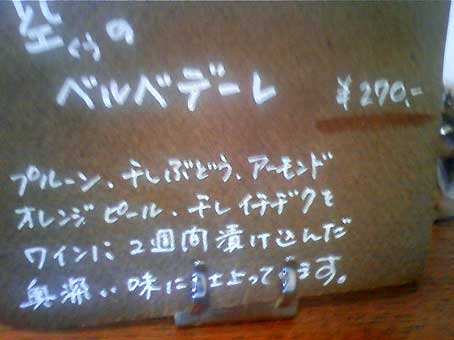 空くうの
ベルベデーレ
¥270.-
プルーン、干しぶどう、アーモンド
オレンジピール、干しイチヂクを
ワインに2週間漬け込んだ
奥深い味に仕上っています。